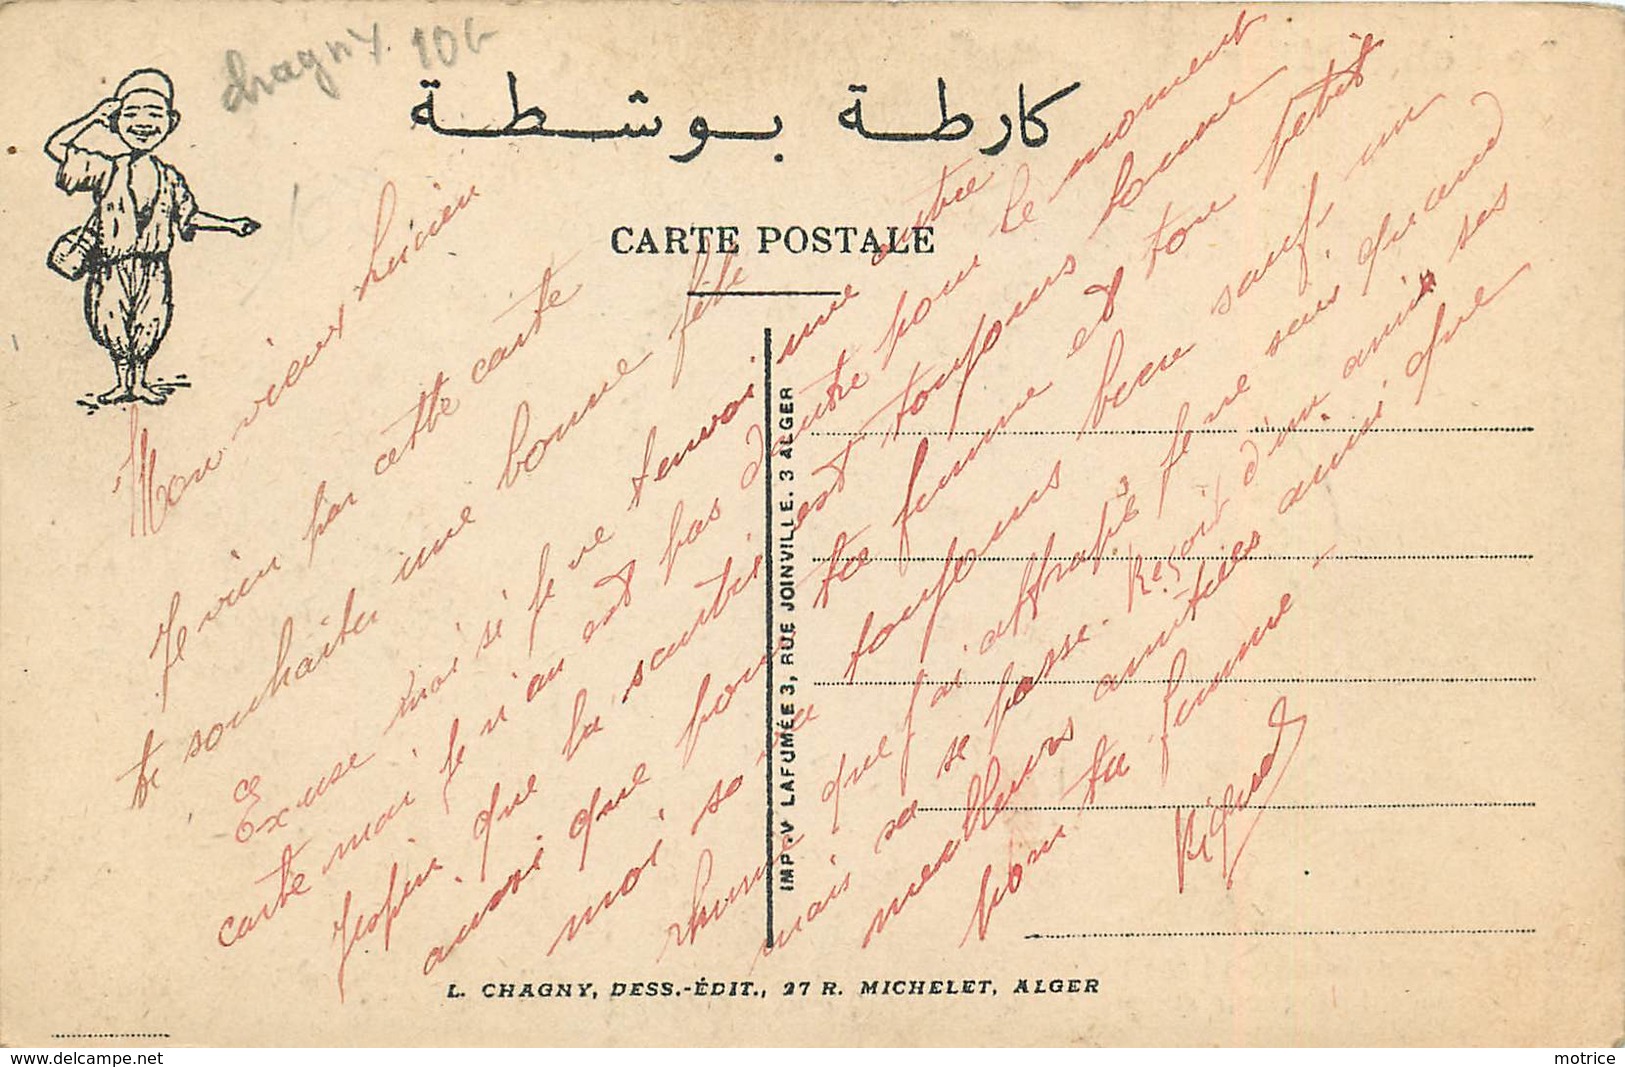 chagny 10f
كارطة بوسشطة
CARTE POSTALE
Mon vieux Lucien
Je vien par cette carte
te souhaiter une bonne fête
Excuse moi si je ne tenvoi une autre
carte moi je n'an est pas dautre pour le moment
Jespère que la santé est toujours bonne
aussi que pour ta femme et ton petit
moi, sa va toujours bien sauf un
rhume que j'ai attrapé je ne sais quand
mais sa se passe. Reçoit d'un ami ses
meilleurs amitiés ainsi que
pour ta femme -
Rigaud
IMP. V LAFUMÉE 3, RUE JOINVILLE. 3 ALGER
L. CHAGNY, DESS.-ÉDIT., 27 R. MICHELET, ALGER
https://www.delcampe.net
motrice